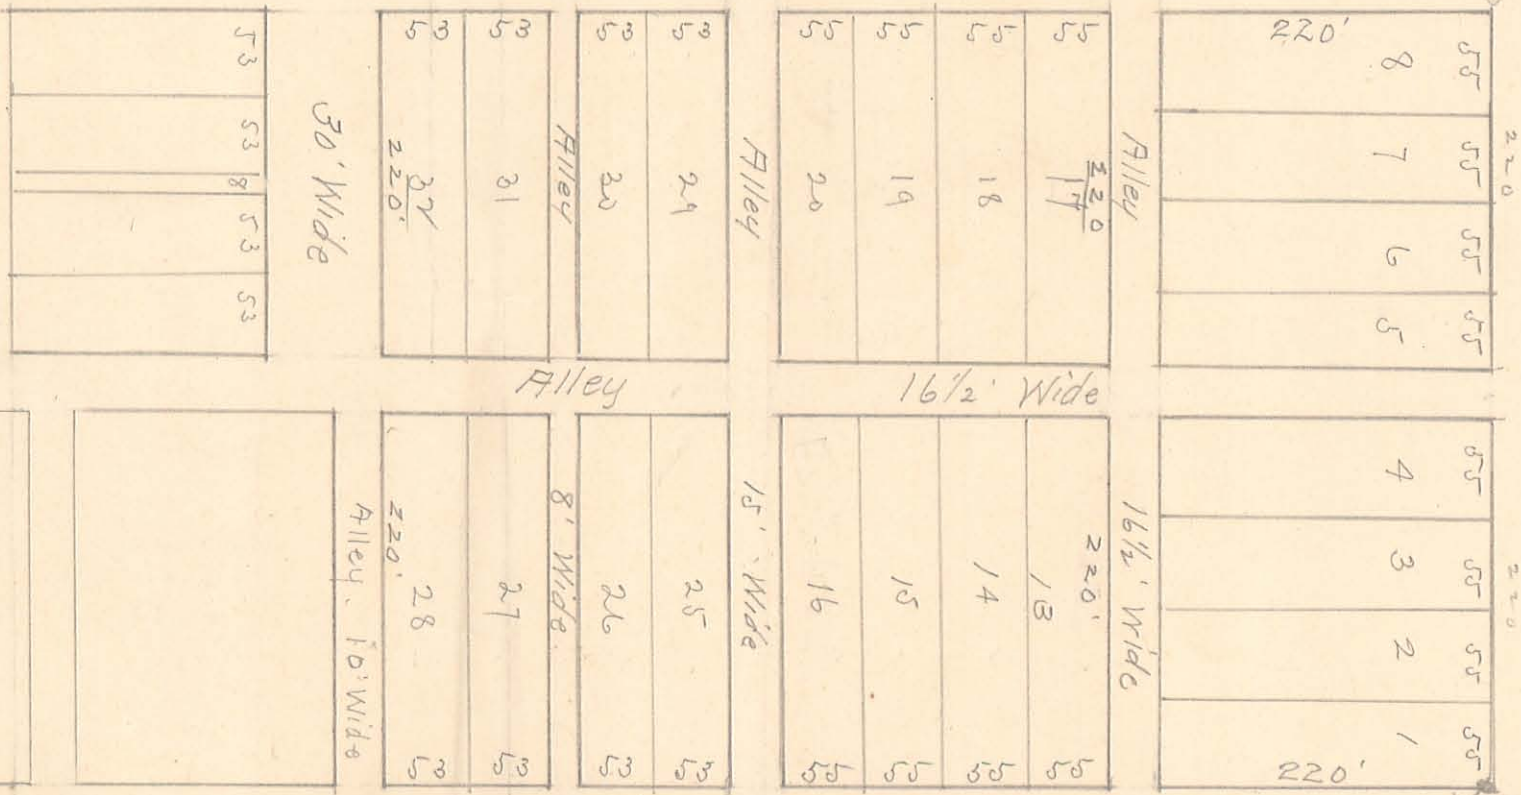 53
53
8
53
53
30' Wide
53 53
32
220'
31
Alley
53 53
30
29
Alley
55 55 55 55
20
19
18
220
17
Alley
220'
8 55
7 55
6 55
5 55
220
Alley 16 1/2' Wide
Alley. 10' Wide
220'
28
27
53 53
8' Wide
26
25
53 53
15' Wide
16
15
14
13
220'
55 55 55 55
16 1/2' Wide
4 55
3 55
2 55
1 55
220'
220